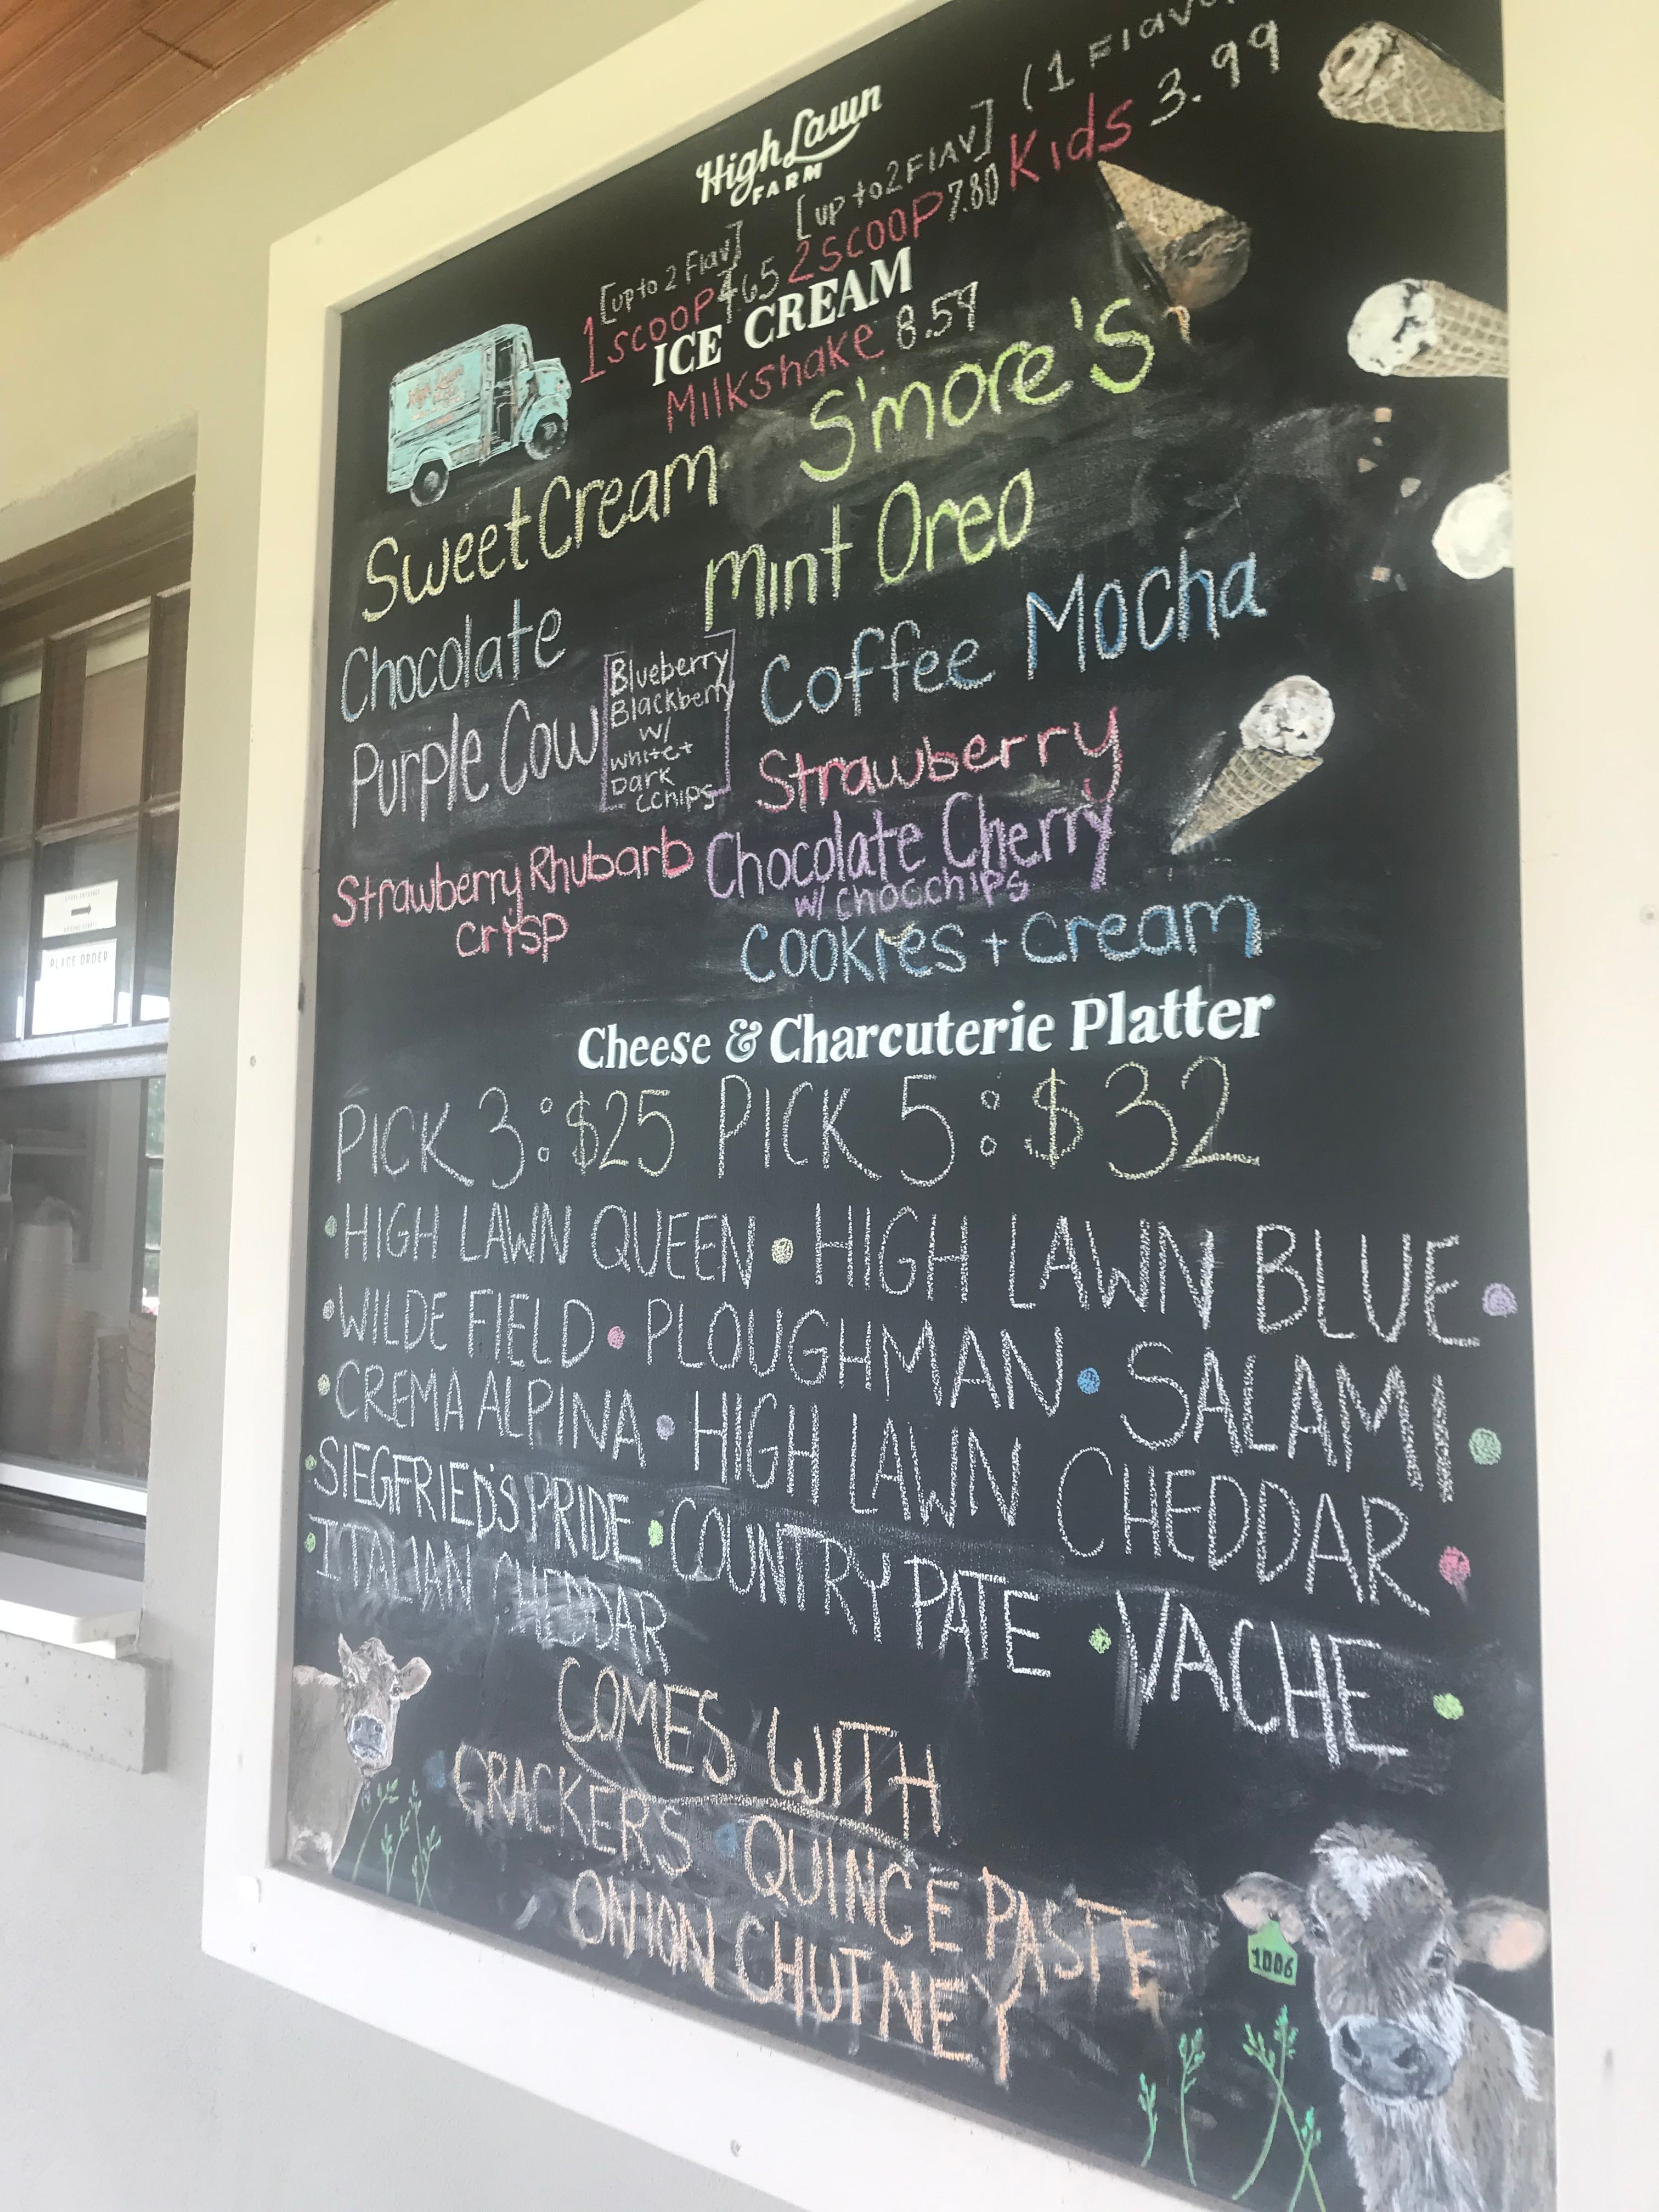 High Lawn
FARM
[up to 2 Flav] [up to 2 FlAV] (1 Flav
1 scoop 4.65 2 scoop 7.80 Kids 3.99
ICE CREAM
Milkshake 8.59
Sweet Cream S'more's
Mint Oreo
Chocolate
Coffee Mocha
Purple Cow
Blueberry
Blackberry
w/
white +
Dark
cchips
Strawberry
Strawberry Rhubarb
crisp
Chocolate Cherry
w/ chocchips
Cookies + Cream
Cheese & Charcuterie Platter
PICK 3: $25 PICK 5: $32
• HIGH LAWN QUEEN • HIGH LAWN BLUE •
• WILDE FIELD • PLOUGHMAN • SALAMI •
• CREMA ALPINA • HIGH LAWN CHEDDAR •
• SIEGFRIED'S PRIDE • COUNTRY PATE • VACHE •
• ITALIAN CHEDDAR
COMES WITH
CRACKERS • QUINCE PASTE
ONION CHUTNEY
1006
PLACE ORDER